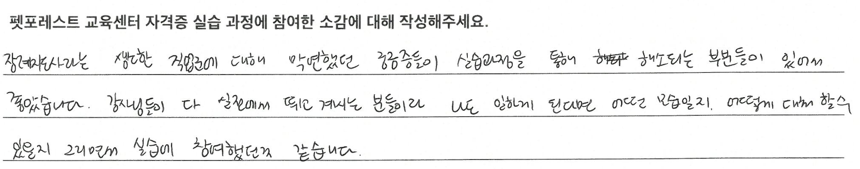 펫포레스트 교육센터 자격증 실습 과정에 참여한 소감에 대해 작성해주세요.
장례지도사라는 생소한 직업군에 대해 막연했던 궁금증들이 실습과정을 통해 해소되는 부분들이 있어서
좋았습니다. 강사님들이 다 실전에서 뛰고 계시는 분들이라 나도 일하게 된다면 어떤 모습일지, 어떻게 대처 할수
있을지 그리면서 실습에 참여했던것 같습니다.